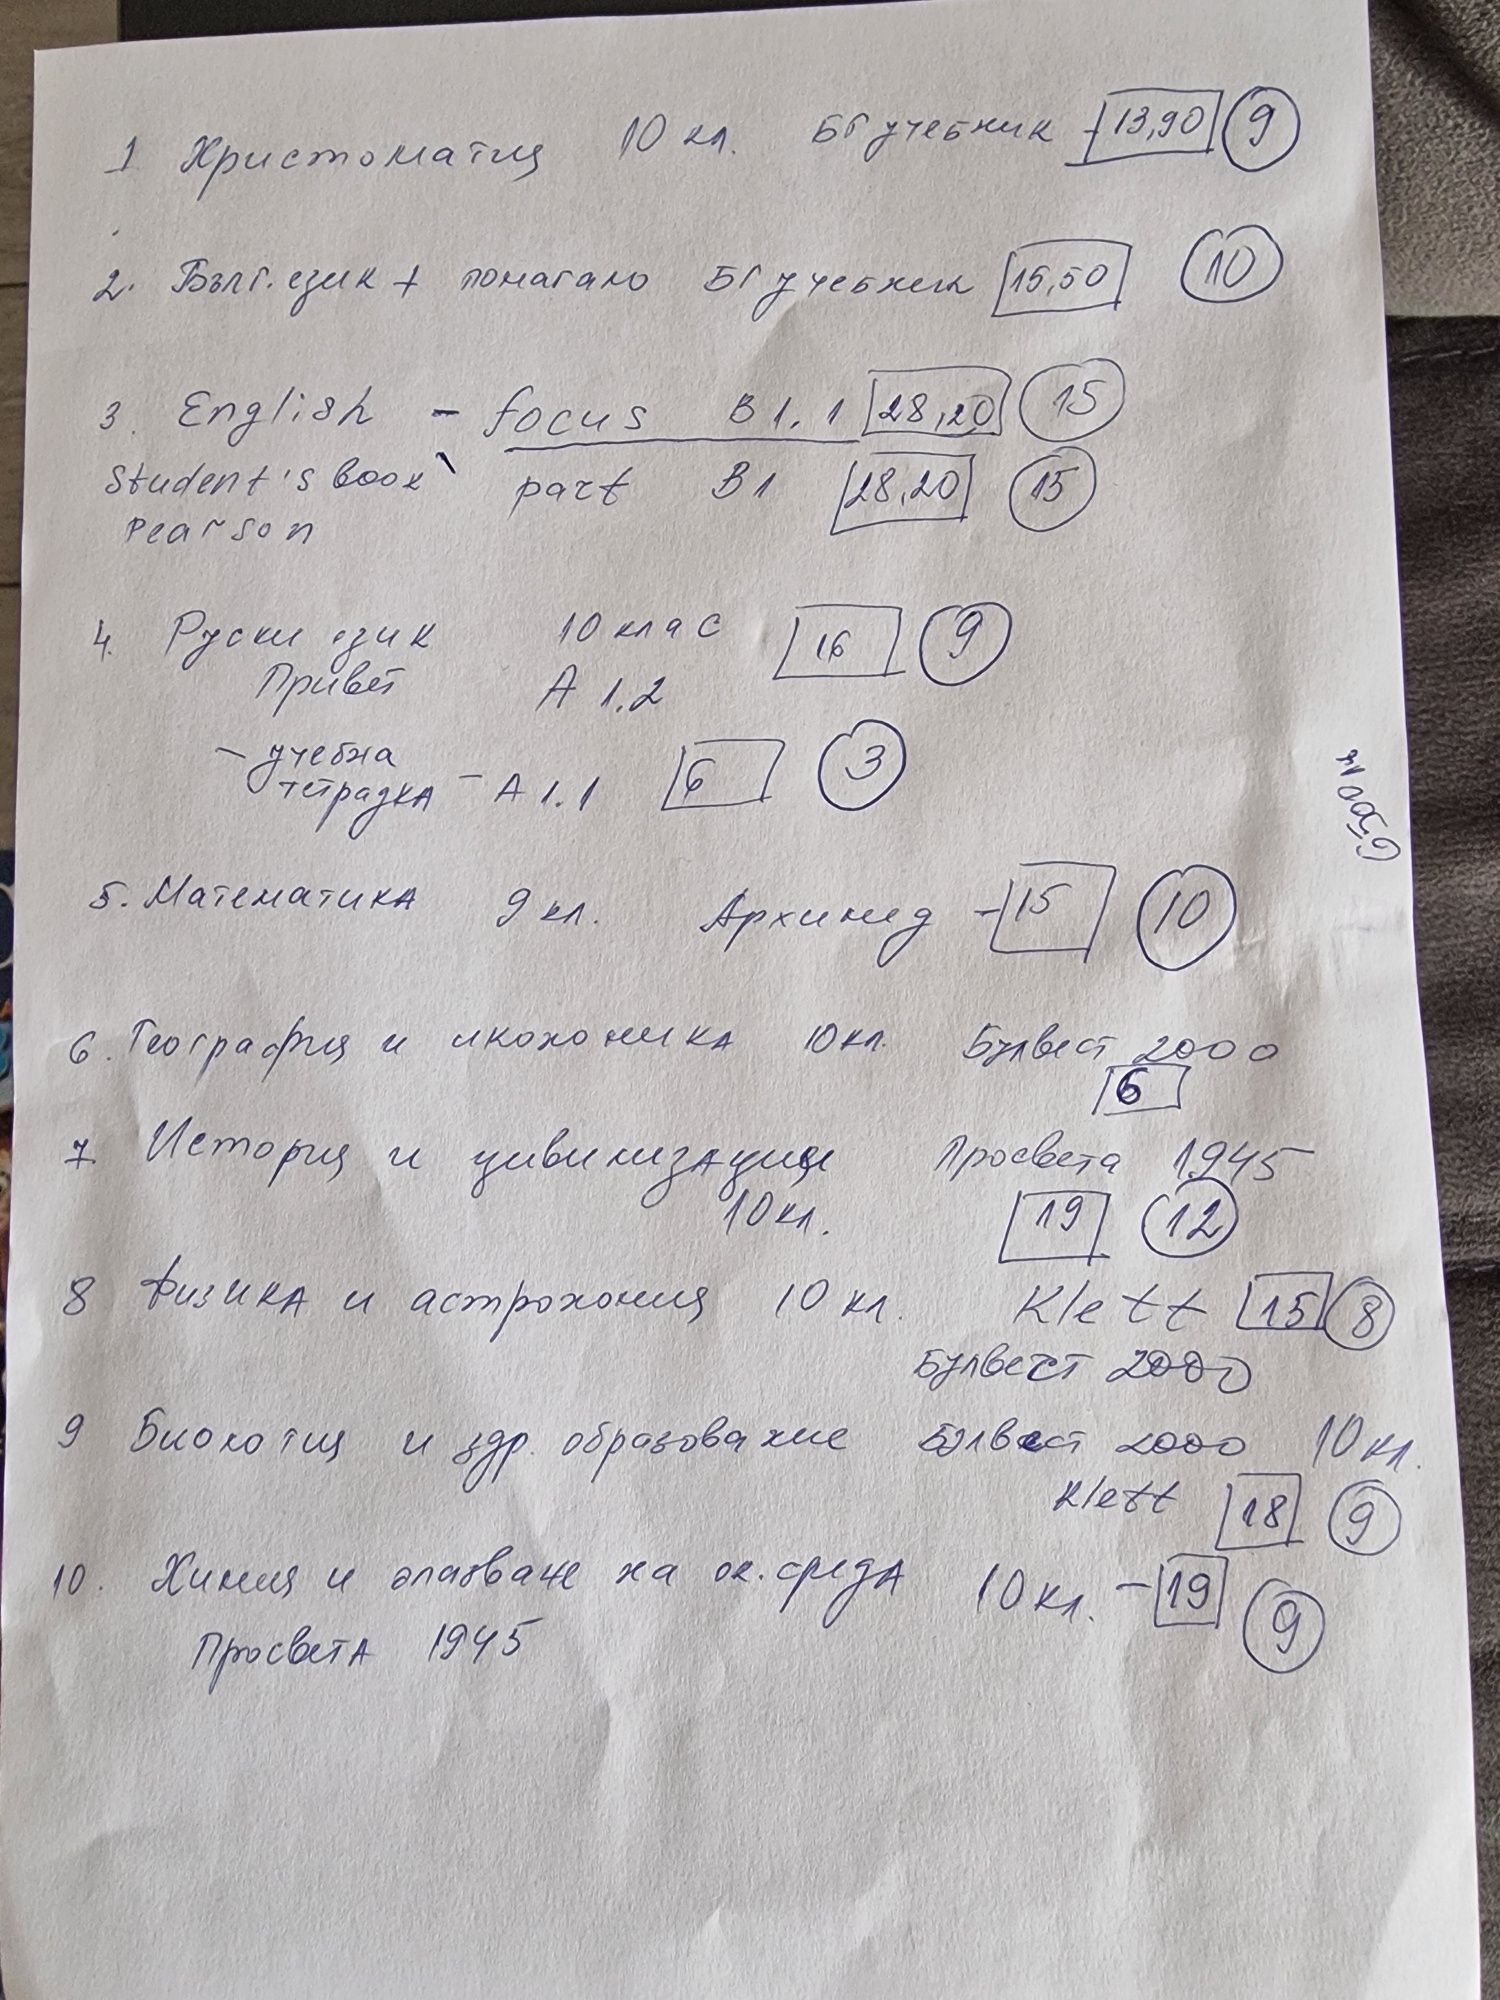 1 Христоматия 10 кл. БГ учебник - 13,90 9
2. Бълг. език + помагало БГ учебник 15,50 10
3. English - focus B1.1 28,20 15
Student's book part B1 28,20 15
Pearson
4. Руски език 10 клас 16 9
Привет А 1.2
- учебна
тетрадка - А 1.1 6 3
5. Математика 9 кл. Архимед - 15 10
6. География и икономика 10 кл. Булвест 2000
6
7. История и цивилизации Просвета 1945
10 кл. 19 12
8 Физика и астрономия 10 кл. Klett 15 8
Булвест 2000
9 Биология и здр. образование Булвест 2000 10 кл.
Klett 18 9
10. Химия и опазване на ок. среда 10 кл. - 19 9
Просвета 1945